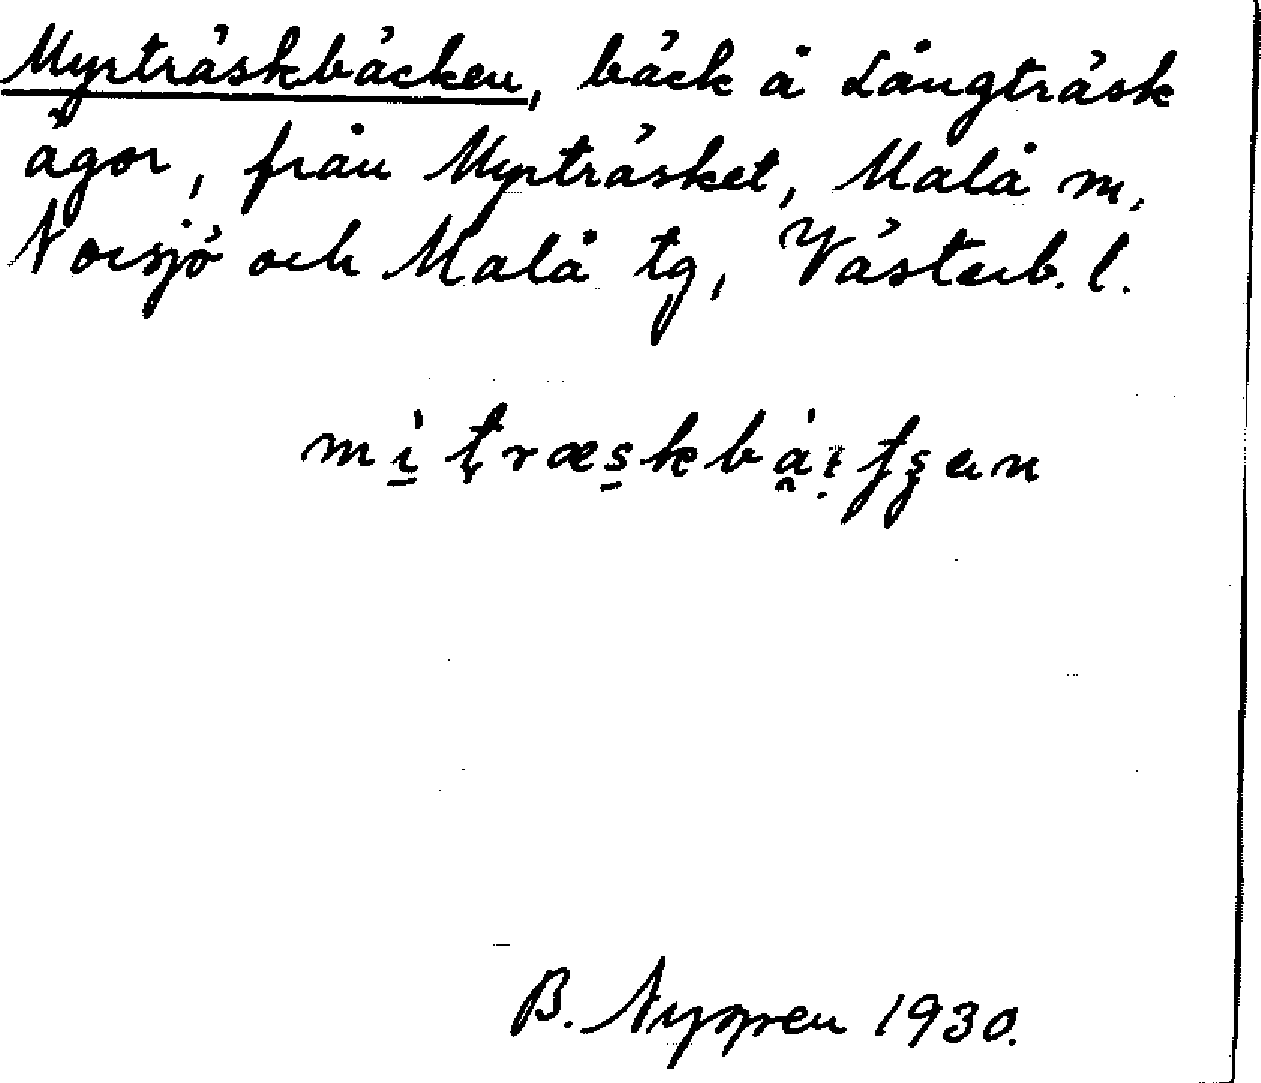 Myrträskbäcken, bäck å Långträsk
ägor, från Myrträsket, Malå m,
Norsjö och Malå tg, Västerb. l.
B. Nygren 1930.